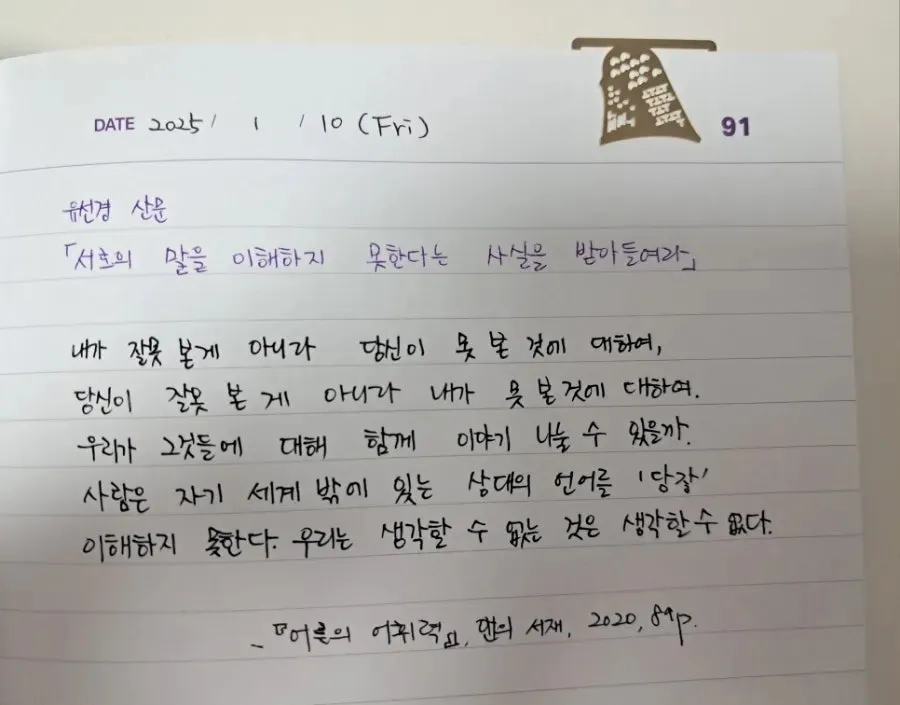 DATE 2025 / 1 / 10 (Fri)
91
유선경 산문
「서로의 말을 이해하지 못한다는 사실을 받아들여라」
내가 잘못 본게 아니라 당신이 못 본 것에 대하여,
당신이 잘못 본 게 아니라 내가 못 본 것에 대하여.
우리가 그것들에 대해 함께 이야기 나눌 수 있을까.
사람은 자기 세계 밖에 있는 상대의 언어를 '당장'
이해하지 못한다. 우리는 생각할 수 없는 것은 생각할 수 없다.
-『어른의 어휘력』, 앤의 서재, 2020, 89p.